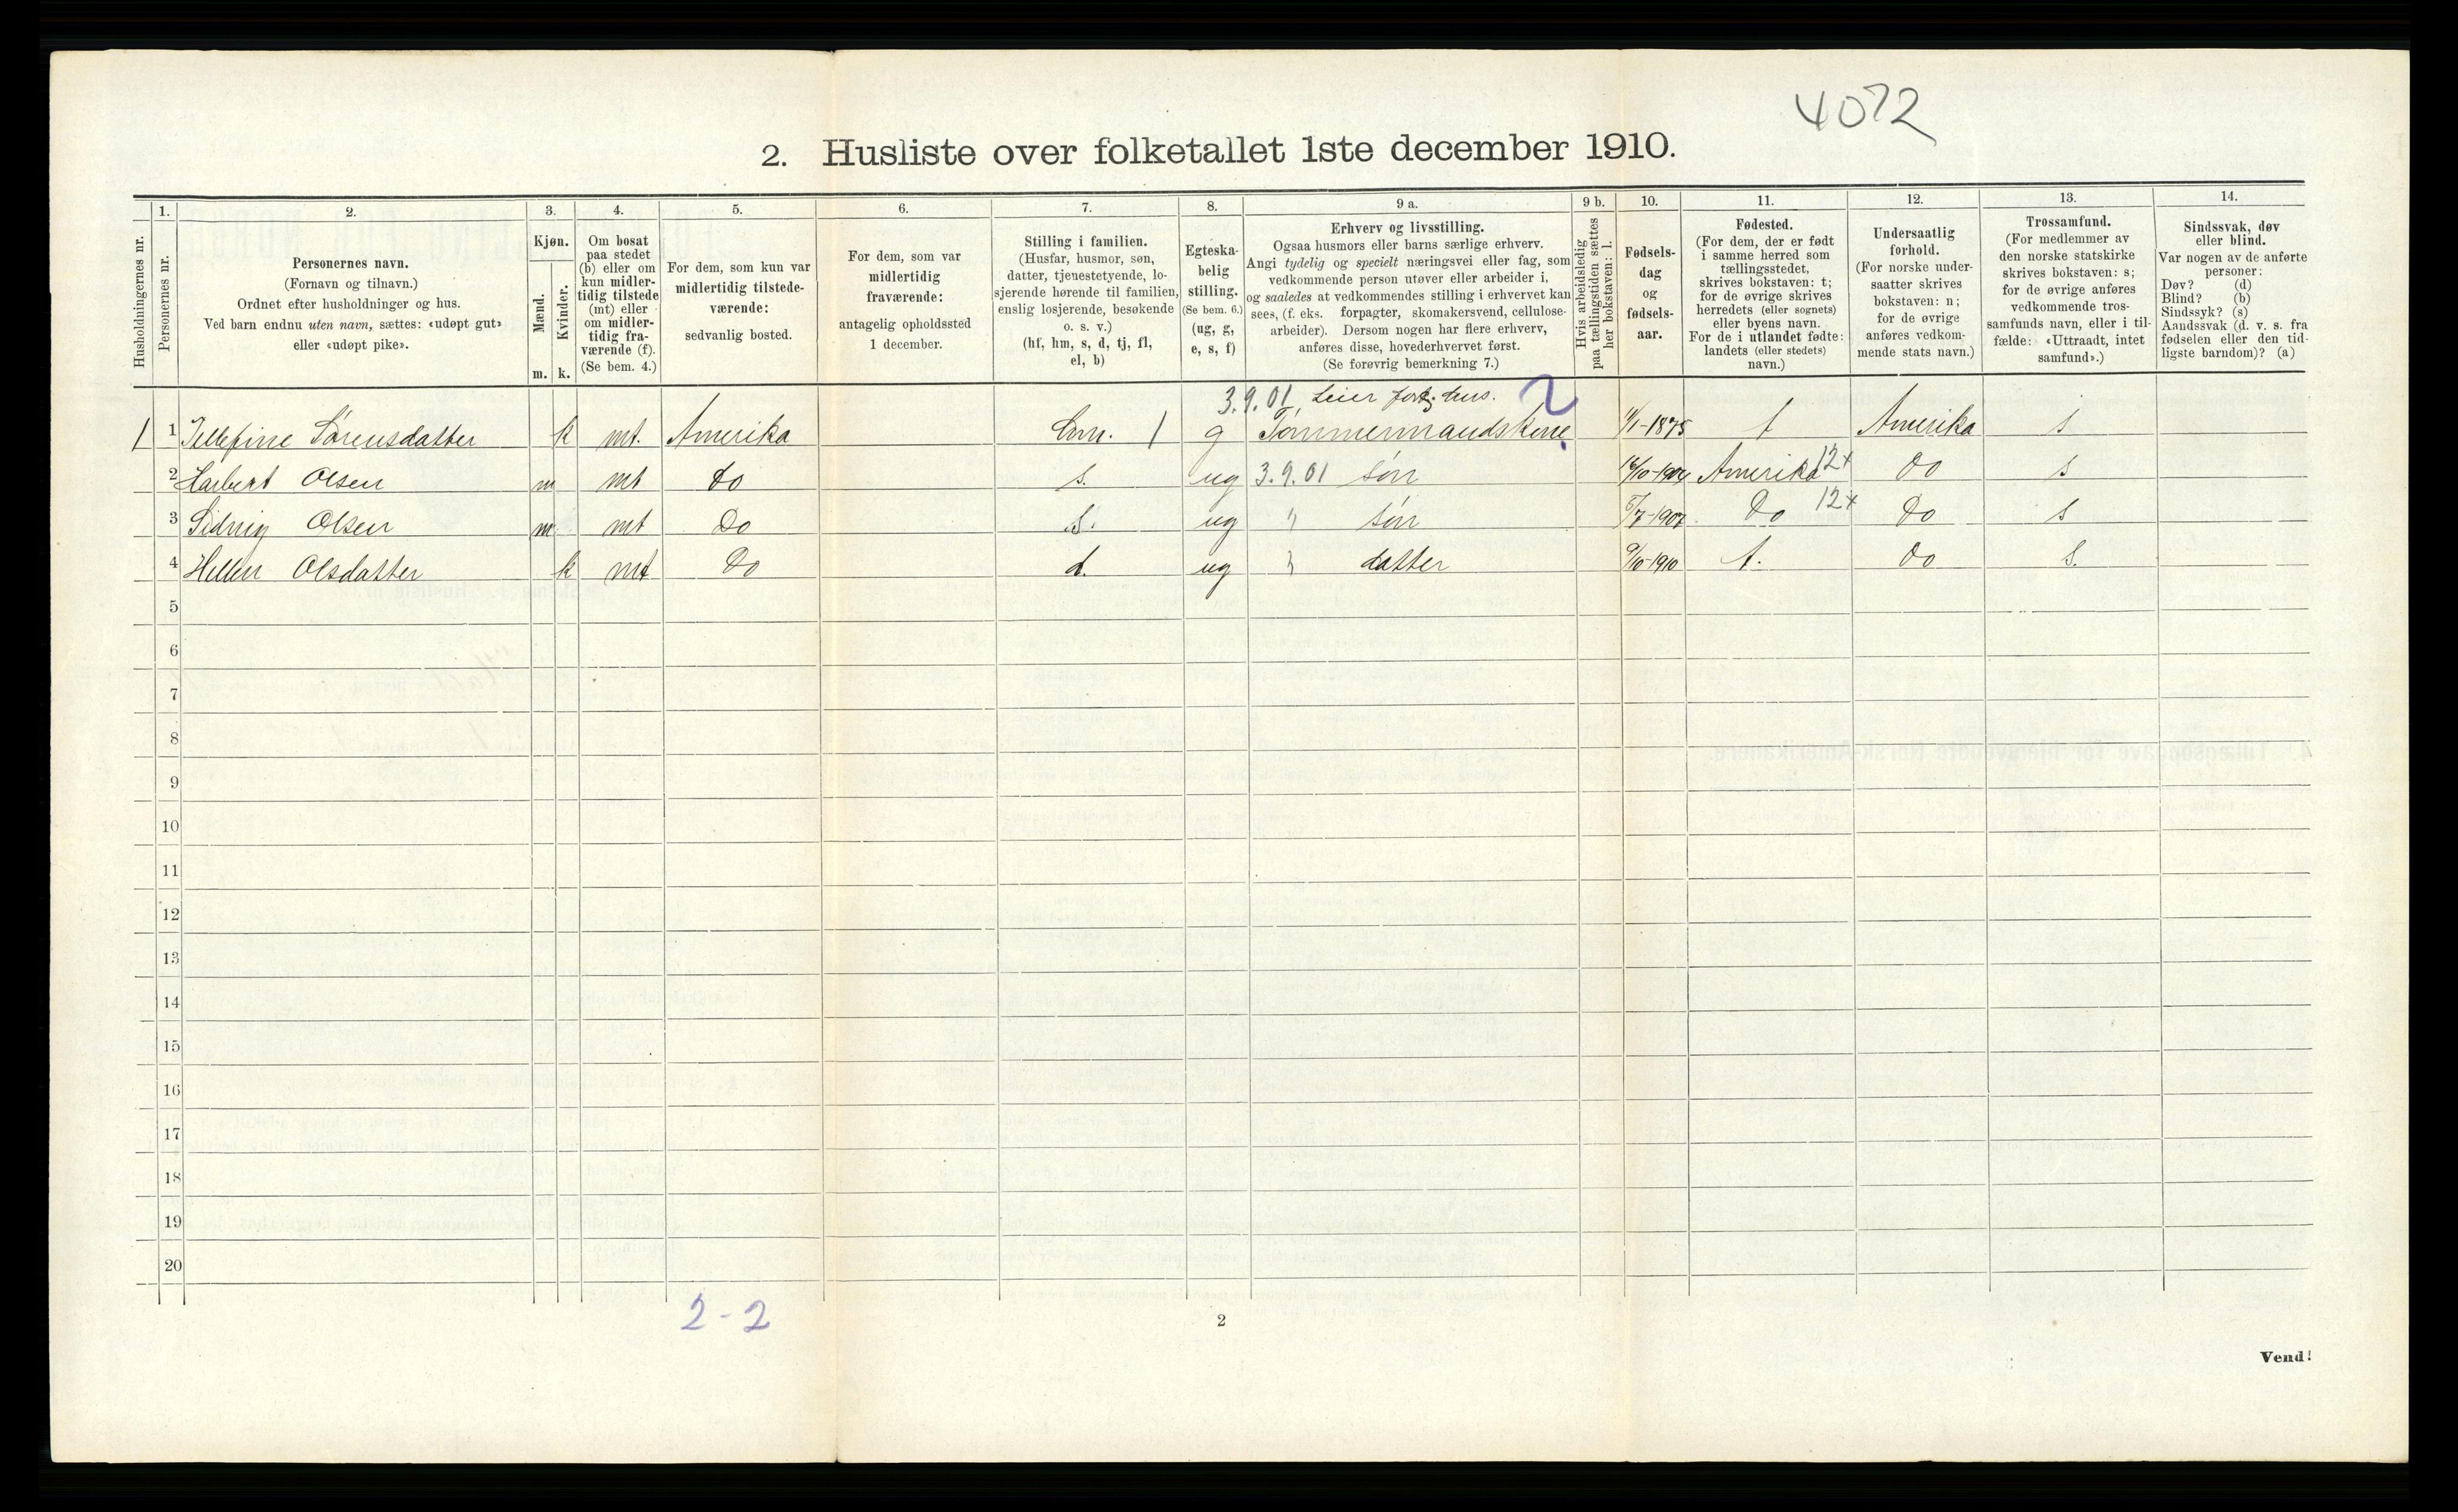 4072
2. Husliste over folketallet 1ste december 1910.
1. 2. 3. 4. 5. 6. 7. 8. 9 a. 9 b. 10. 11. 12. 13. 14.
Husholdningernes nr.
Personernes nr.
Personernes navn.
(Fornavn og tilnavn.)
Ordnet efter husholdninger og hus.
Ved barn endnu uten navn, sættes: «udøpt gut»
eller «udøpt pike».
Kjøn.
Mænd.
Kvinder.
m. k.
Om bosat
paa stedet
(b) eller om
kun midler-
tidig tilstede
(mt) eller
om midler-
tidig fra-
værende (f).
(Se bem. 4.)
For dem, som kun var
midlertidig tilstede-
værende:
sedvanlig bosted.
For dem, som var
midlertidig
fraværende:
antagelig opholdssted
1 december.
Stilling i familien.
(Husfar, husmor, søn,
datter, tjenestetyende, lo-
sjerende hørende til familien,
enslig losjerende, besøkende
o. s. v.)
(hf, hm, s, d, tj, fl,
el, b)
Egteska-
belig
stilling.
(Se bem. 6.)
(ug, g,
e, s, f)
Erhverv og livsstilling.
Ogsaa husmors eller barns særlige erhverv.
Angi tydelig og specielt næringsvei eller fag, som
vedkommende person utøver eller arbeider i,
og saaledes at vedkommendes stilling i erhvervet kan
sees, (f. eks. forpagter, skomakersvend, cellulose-
arbeider). Dersom nogen har flere erhverv,
anføres disse, hovederhvervet først.
(Se forøvrig bemerkning 7.)
Hvis arbeidsledig
paa tællingstiden sættes
her bokstaven: l.
Fødsels-
dag
og
fødsels-
aar.
Fødested.
(For dem, der er født
i samme herred som
tællingsstedet,
skrives bokstaven: t;
for de øvrige skrives
herredets (eller sognets)
eller byens navn.
For de i utlandet fødte:
landets (eller stedets)
navn.)
Undersaatlig
forhold.
(For norske under-
saatter skrives
bokstaven: n;
for de øvrige
anføres vedkom-
mende stats navn.)
Trossamfund.
(For medlemmer av
den norske statskirke
skrives bokstaven: s;
for de øvrige anføres
vedkommende tros-
samfunds navn, eller i til-
fælde: «Uttraadt, intet
samfund».)
Sindssvak, døv
eller blind.
Var nogen av de anførte
personer:
Døv? (d)
Blind? (b)
Sindssyk? (s)
Aandssvak (d. v. s. fra
fødselen eller den tid-
ligste barndom)? (a)
3.9.01, Leier hus. 2
1 1 Sørensdatter k mt. Amerika 1 g Tømmermandskone 1875 t Amerika s
2 Harbert Olsen m mt do s. ug 3.9.01 søn 16/10-1904 Amerika 12+ do s
3 Sidnig Olsen m mt Do S. ug " søn 5/7-1907 Do 12+ Do s
4 Hellen Olsdatter k mt Do d. ug " datter 9/10-1910 t. do s.
5
6
7
8
9
10
11
12
13
14
15
16
17
18
19
20
2-2
2
Vend!